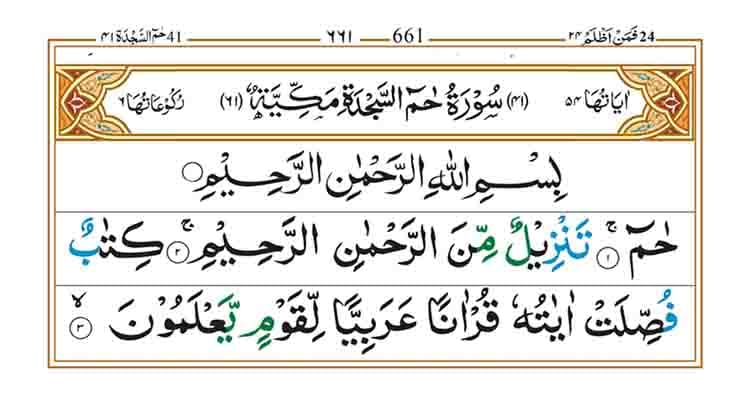 فَمَنْ اَظْلَمُ 24 ٢٤ 661 ٦٦١ حٰمٓ السَّجْدَة 41 ٤١
اٰيَاتُهَا ٥٤ (٤١) سُوْرَةُ حٰمٓ السَّجْدَةِ مَكِّيَّةٌ (٦١) رُكُوْعَاتُهَا ٦
بِسْمِ اللهِ الرَّحْمٰنِ الرَّحِيْمِ
حٰمٓ ۚ ١ تَنْزِيْلٌ مِّنَ الرَّحْمٰنِ الرَّحِيْمِ ۚ ٢ كِتٰبٌ
فُصِّلَتْ اٰيٰتُهٗ قُرْاٰنًا عَرَبِيًّا لِّقَوْمٍ يَّعْلَمُوْنَ ۙ ٣